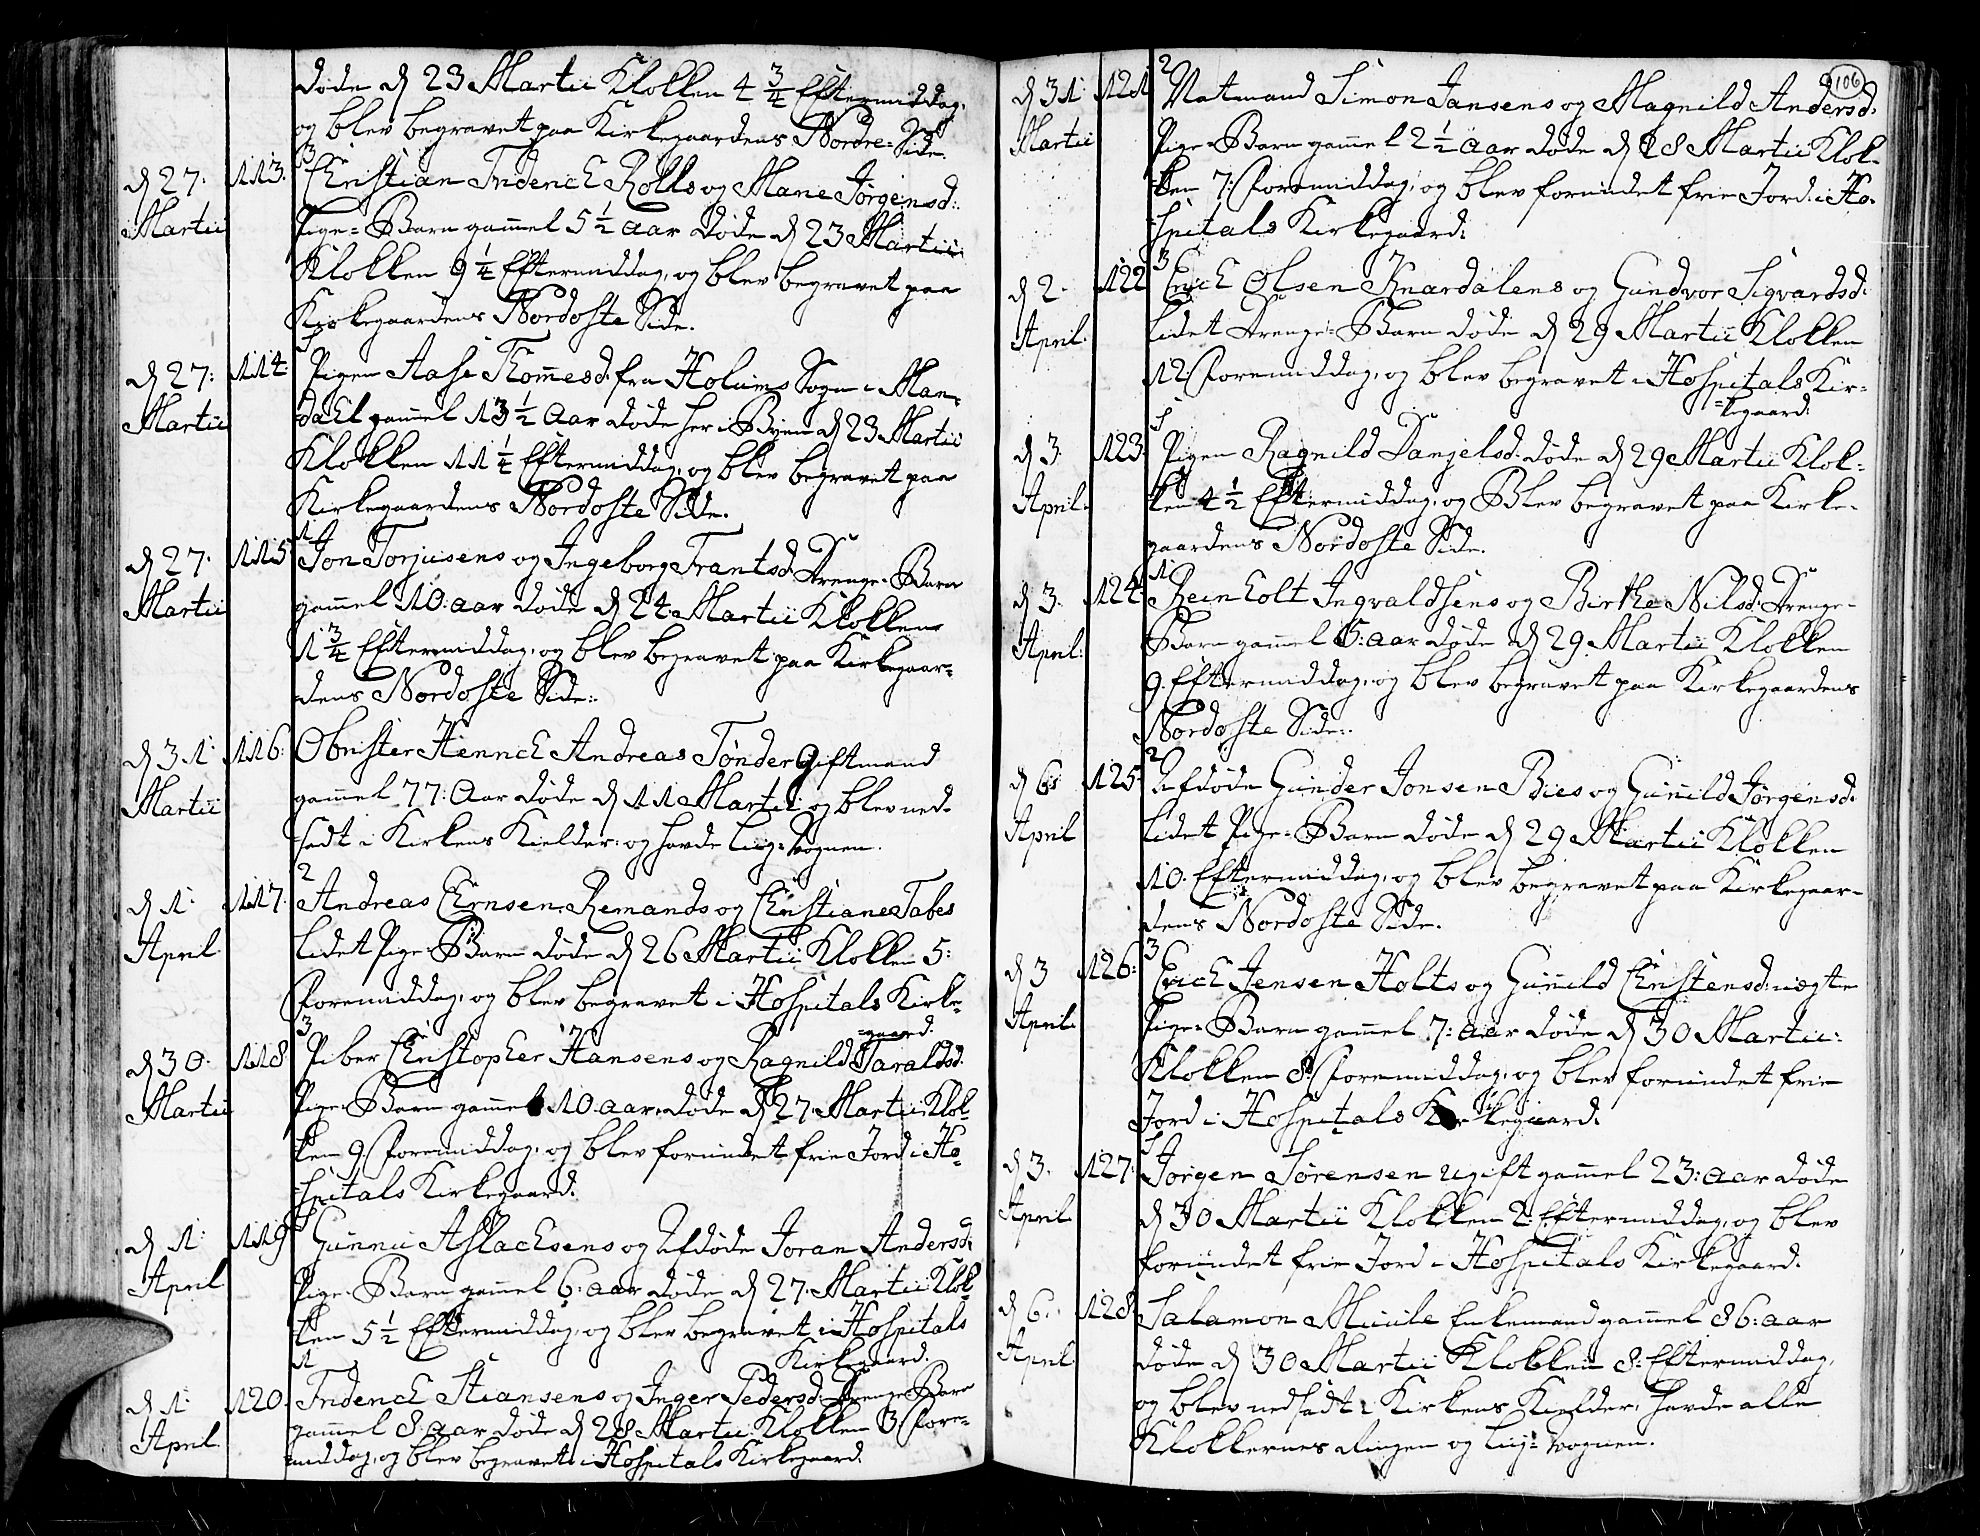 døde d 23 Martii Klokken 4 3/4 Eftermiddag,
og blev begravet paa Kirkegaardens Nordre-Side.
3
d 27: 113. Christian Friderich Rolls og Marie Jørgensd:
Martii Pige-Barn gam̃el 5 1/2 aar døde d 23 Martii
Klokken 9 1/4 Eftermiddag, og blev begravet paa
Kirkegaardens Nordoste Side.
d 27: 114: Pigen Aase Thom̃esd. fra Holums Sogn i Man-
Martii dahl gam̃el 13 1/2 Aar døde her i Byen d 23 Martii
Klokken 11 1/4 Eftermiddag, og blev begravet paa
Kirkegaardens Nordoste Side.
1
d 27. 115 Jon Torjusens og Ingeborg Frantsd. Drenge-Barn
Martii gam̃el 10: aar døde d 24. Martii Klokken
1 3/4 Eftermiddag, og blev begravet paa Kirkegaar-
dens Nordoste Side:
d 31: 116: Obrister Henrich Andreas Tønder Giftmand
Martii gam̃el 77: Aar døde d 11 Martii og blev ned-
sadt i Kirkens Kielder: og havde Liig-Vognen.
2
d 1: 117. Andreas Ernsen Remands og Christiane Tabes
April Lidet Pige-Barn døde d 26 Martii Klokken 5:
Formiddag, og blev begravet i Hospitals Kirke-
gaard:
3
d 30. 118 Piber Christopher Hansens og Ragnild Taraldsd.
Martii Pige-Barn gam̃el 10. aar, døde d 27. Martii Klok-
ken 9. Formiddag, og blev forundet frie Jord i Ho-
spitals Kirkegaard.
d 1: 119 Gunnu Aslachsens og Afdøde Joran Andersd:
April Pige-Barn gam̃el 6. aar døde d 27. Martii Klok-
ken 5 1/2 Eftermiddag, og blev begravet i Hospitals
Kirkegaard.
1
d 1: 120. Friderich Stiansens og Inger Pedersd: Drenge-Barn
April gam̃el 8. aar døde d 28 Martii Klokken 3 For-
middag, og blev begravet i Hospitals Kirkegaard.
106
2
d 31: 121 Natmand Simon Jansens og Magnild Andersd.
Martii Pige-Barn gam̃el 2 1/2 Aar døde d 28 Martii Klok-
ken 7: Formiddag, og blev forundet frie Jord i Ho-
spitals Kirkegaard:
3
d 2. 122 Erich Olsen Knardalens og Gundvor Sigvardsd:
April. Lidet Drenge-Barn døde d 29 Martii Klokken
12. Formiddag, og blev begravet i Hospitals Kir-
kegaard.
d 3 123. Pigen Ragnild Danjelsd. døde d 29 Martii Klok-
April. ken 4 1/2 Eftermiddag, og Blev begravet paa Kirke-
gaardens Nordoste Side.
1
d 3. 124: Reinholt Ingvaldsens og Birthe Nilsd: Drenge-
April. Barn gam̃el 5: aar døde d 29 Martii Klokken
9. Eftermiddag, og blev begravet paa Kirkegaardens
Nordoste Side.
2
d 6 125: Afdøde Gunder Jonsen Bies og Gun̄ild Jørgensd.
April Lidet Pige-Barn døde d 29 Martii Klokken
10. Eftermiddag, og blev begravet paa Kirkegaar-
dens Nordoste Side.
3
d 3 126: Erich Jensen Holts og Gun̄ild Christensd: uægte
April. Pige-Barn gam̃el 7: aar døde d 30 Martii:
Klokken 8. Formiddag, og blev forundet frie
Jord i Hospitals Kirkegaard.
d 3. 127: Jørgen Sørensen ugift gam̃el 23: aar døde
April. d 30 Martii Klokken 2. Eftermiddag, og blev
forundet frie Jord i Hospitals Kirkegaard.
d 6. 128 Salamon Muule Enkemand gam̃el 86: aar
April. døde d 30 Martii Klokken 8: Eftermiddag,
og blev nedsadt i Kirkens Kielder, havde alle
Klokkernes Ringen og Liig-Vognen.